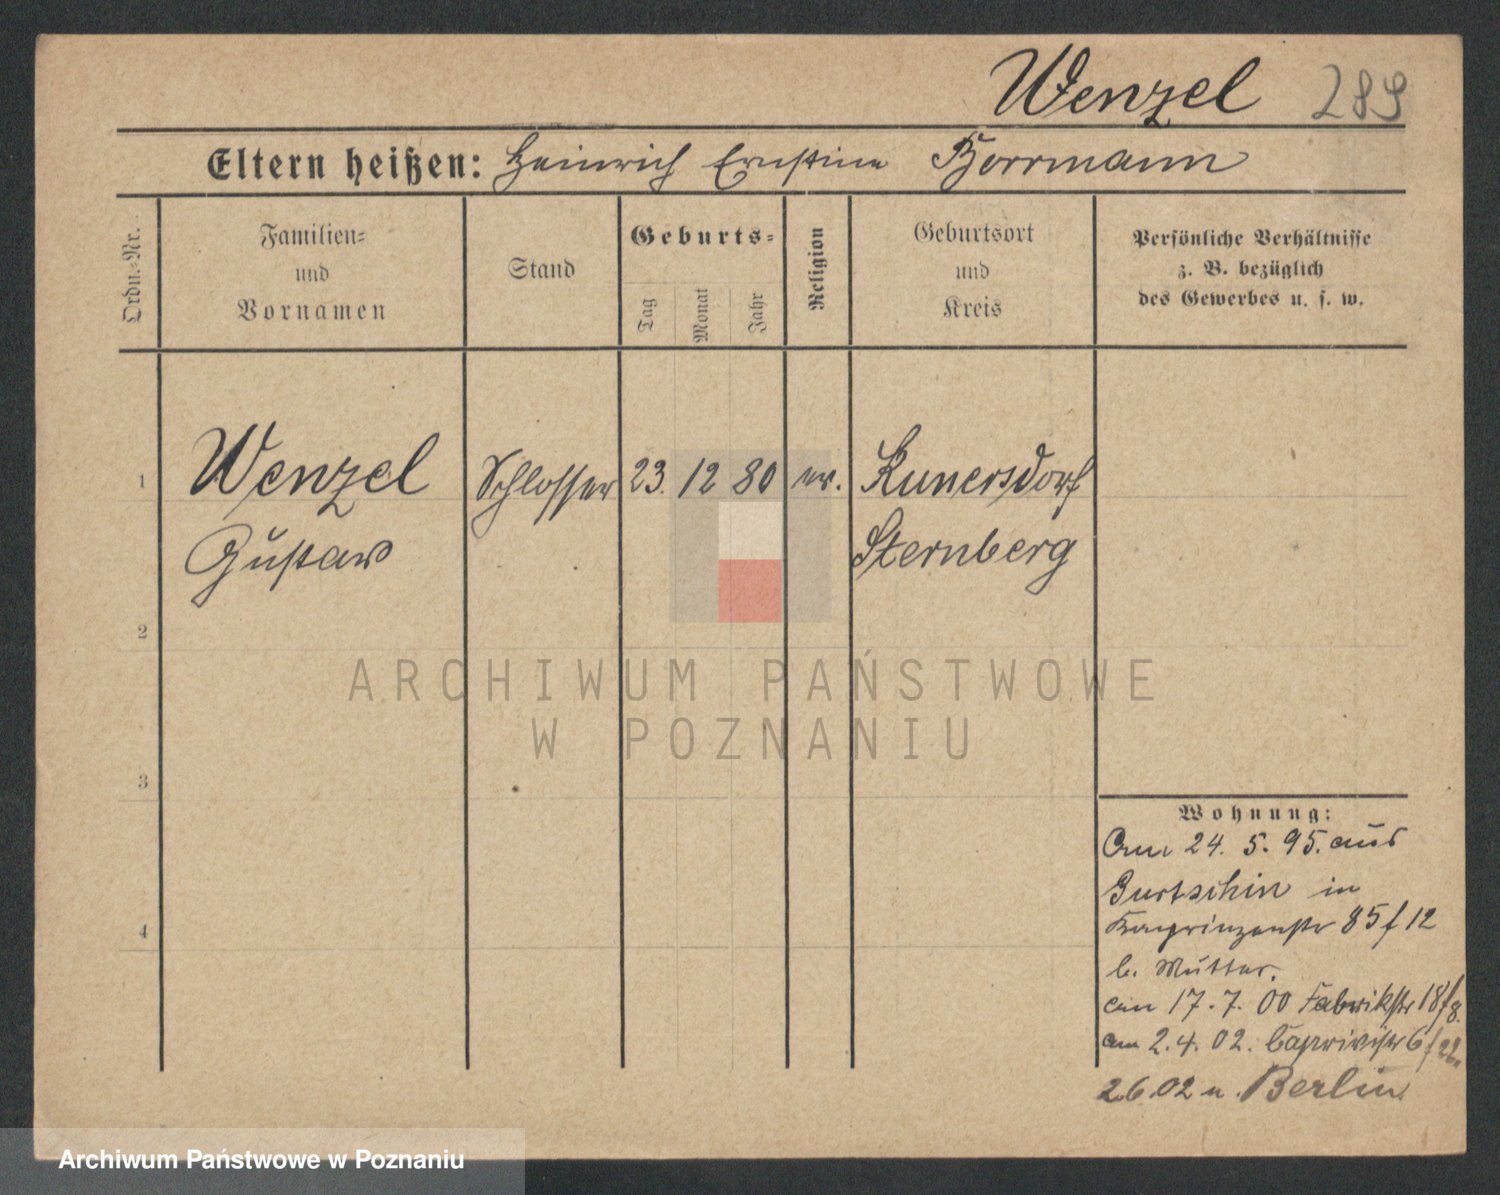 Wenzel 289
Eltern heißen: Heinrich Ernstine Borrmann
Ordn.-Nr.
Familien-
und
Vornamen
Stand
Geburts-
Tag
Monat
Jahr
Religion
Geburtsort
und
Kreis
Persönliche Verhältnisse
z. B. bezüglich
des Gewerbes u. s. w.
1 Wenzel Schlosser 23. 12 80 ev. Kunersdorf
Gustav Sternberg
2
3
4
ARCHIWUM PAŃSTWOWE
W POZNANIU
Wohnung:
Am 24. 5. 95. aus
Gurtschin in
Kronprinzenstr 85 f 12
b. Mutter.
am 17. 7. 00 Fabrikstr 18/8.
am 2. 4. 02. Caprivistr 6/22
2.6.02 n. Berlin
Archiwum Państwowe w Poznaniu